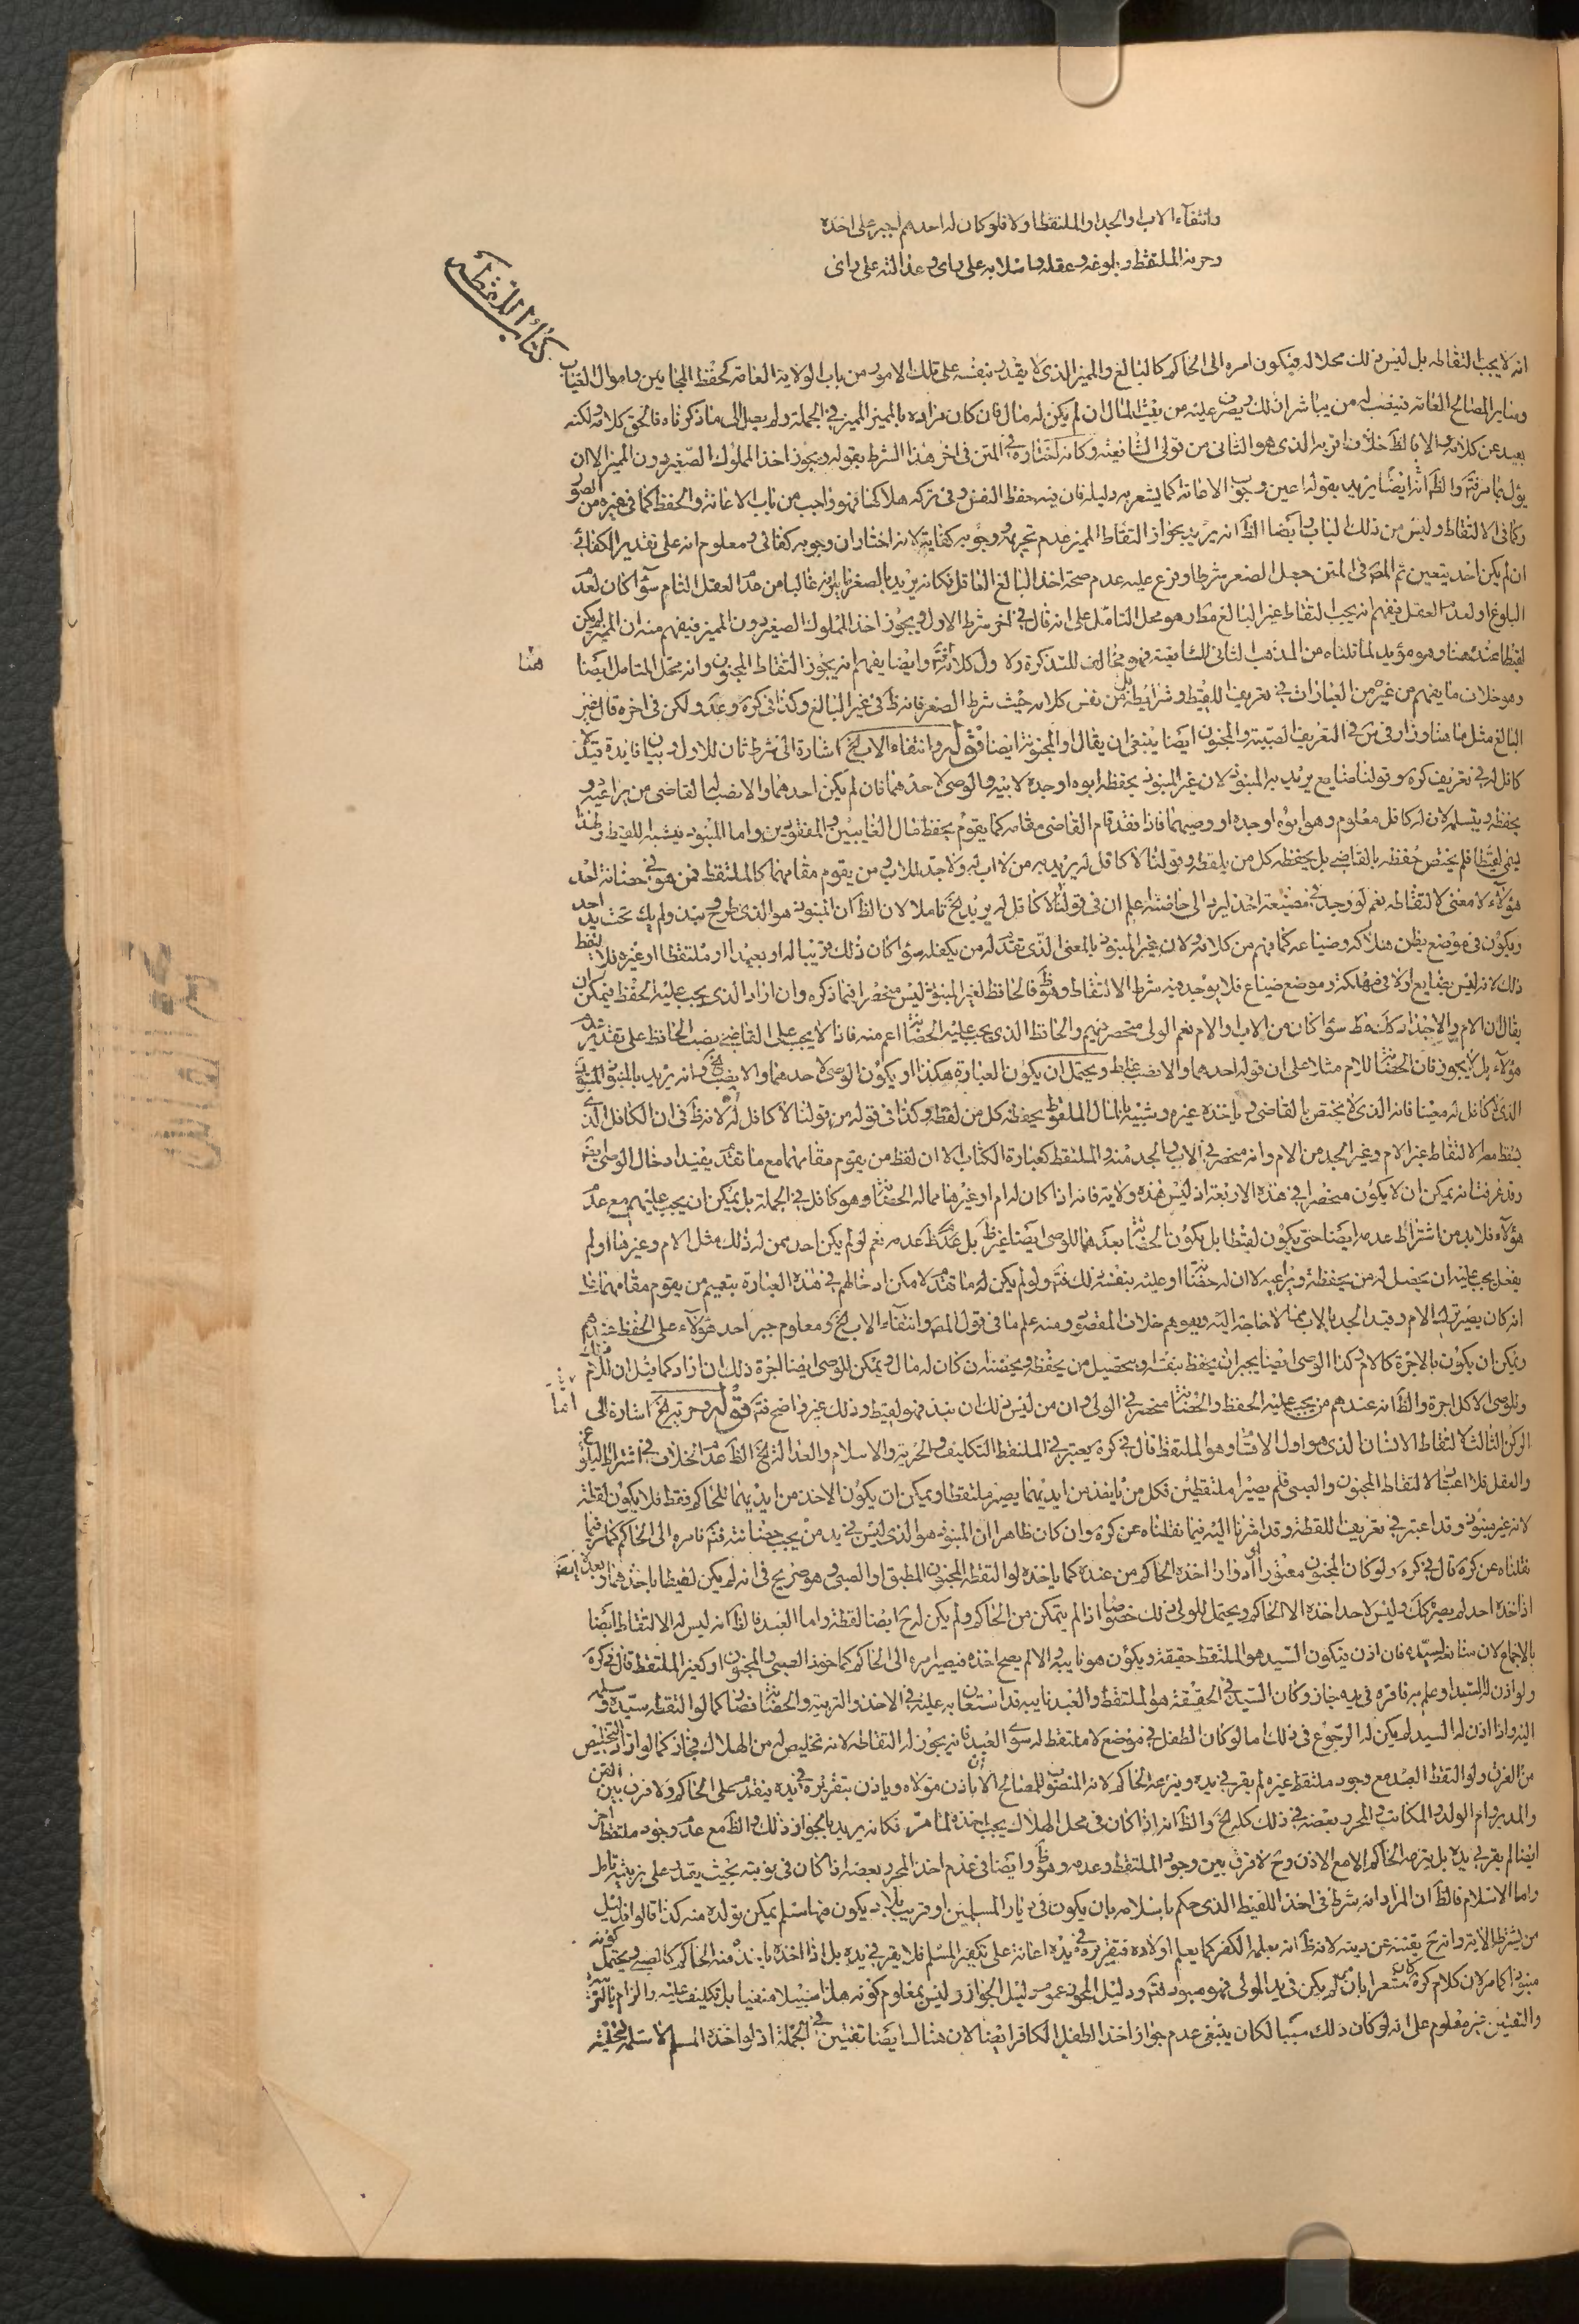 وانتفآء الاب والجد والملتقط اولا فلو كان له احدهم اجبر على اخذه
وحرية الملتقط وبلوغه وعقله واسلامه على راى وعدالته على راى
كتاب اللقطه
انه لا يجب التقاطه بل ليس ذلك محلا له فيكون امره الى الحاكم كالبالغ والمميز الذى لا يقدر بنفسه على تلك الامور من باب الولاية العامة كحفظ المجانين واموال الغياب
وساير المصالح العامة فينصب له من يباشر ذلك ويصرف عليه من بيت المال ان لم يكن له مال فان كان مراده بالمميز المميز في الجملة ولم يصل الى ما ذكرناه فالحق كلامه ولكنه
بعيد عن كلامه والا فالظ خلاف اقربه الذى هو الثانى من قولى الشافعية وكانه اختاره في المتن فى اخر هذا الشرط بقوله ويجوز اخذ المملوك الصغير دون المميز الا ان
يؤل بما مر فتم والظ انه ايضا يريد بقوله اعين وجوب الاعانة كما يشعر به دليله فان فيه حفظ النفس وفى تركه هلاكها فهو واجب من باب الاعانة والحفظ كما فى غيره من الصور
وكما فى الالتقاط وليس من ذلك الباب وايضا الظ انه يريد بجواز التقاط المميز عدم تحريمه ووجوبه كفاية لانه اختار ان وجوبه كفائى ومعلوم انه على تقدير الكفائى
ان لم يكن احد يتعين ثم المص فى المتن جعل الصغر شرطا وفرع عليه عدم صحة اخذ البالغ العاقل فكانه يريد بالصغر ما يلزمه غالبا من عدم العقل التام سوآء كان لعدم
البلوغ او لعدم العقل فيفهم انه يجب التقاط غير البالغ مط وهو محل التامل على انه قال في اخر شرط الاول ويجوز اخذ المملوك الصغير دون المميز فيفهم منه ان المميز لم يكن
لقيطا عنده هنا وهو مؤيد لما قلناه من المذهب الثانى للشافعية فهو مخالف للتذكرة ولاول كلامه فتم وايضا يفهم انه يجوز التقاط المجنون وانه محل التامل ايضا
هنا
وهو خلاف ما يفهم من غيره من العبارات في تعريف اللقيط وشرايطه بل من نفس كلامه حيث شرط الصغر فانه ظ فى غير البالغ وكذا فى كرة وعد ولكن فى اخره قال غير
البالغ مثل ما هنا وزاد فى س في التعريف الصبية والمجنون ايضا ينبغى ان يقال او المجنونة ايضا قوله وانتفاء الاب الخ اشارة الى شرط ثان للاول وبيان فايدة قيد لا
كافل له في تعريف كرة وقولنا ضايع يريد به المنبوذ لان غير المنبوذ يحفظه ابوه او جده لابيه والوصى لاحدهما فان لم يكن احدهما والا نصب له القاضى من يراعيه و
يحفظه ويتسلمه لان له كافل معلوم وهو ابوه او جده او وصيهما فاذا فقد قام القاضى مقامه كما يقوم بحفظ مال الغايبين والمفقودين واما المنبوذ فيشبه اللقيط ولهذا
يسمى لقيطا فلم يختص حفظه بالقاضى بل يحفظه كل من يلقطه وقولنا لا كافل له يريد به من لا اب له ولا جد للاب ومن يقوم مقامهما كالملتقط فمن هو في حضانة احد
هؤلآء لا معنى لالتقاطه نعم لو وجد في مضيعة اخذ ليرد الى حاضنه علم ان فى قولنا لا كافل له يريد الخ تاملا لان الظ ان المنبوذ هو الذى طرح ونبذ ولم يك تحت يد احد
ويكون فى موضع يظن هلاكه وضياعه كما يفهم من كلامه ولان غير المنبوذ بالمعنى الذى تقدم له من يكفله سوآ كان ذلك قريبا له او بعيدا او ملتقطا او غيره فلا يلقط
ذلك لانه ليس بضايع اولا فى مهلكة وموضع ضياع فلا يوجد فيه شرط الالتقاط وهو ظ فالحافظ لغير المنبوذ ليس منحصرا فيما ذكره وان اراد الذى يجب عليه الحفظ فيمكن ان
يقال ان الام والاجداد كلهم كذلك سوآ كان من الاب او الام نعم الولى منحصر فيهم والحافظ الذى يجب عليه الحضانة اعم منه فاذا لا يجب على القاضى نصب الحافظ على تقدير عدم
هؤلآء بل لا يجوز فان الحضانة للام مثلا على ان قوله احدهما والا نصب غلط ويحتمل ان يكون العبارة هكذا او يكون الوصى لاحدهما والا نصب الخ وانه يريد بالمنبوذ المنبوذ
الذى لا كافل له معينا فانه الذى لا يختص بالقاضى و ياخذه غيره وشبيه بالمال الملقوط يحفظه كل من لقطه وكذا فى قوله من قولنا لا كافل له لانه ظ فى ان الكافل الذى
يسقط معه الالتقاط غير الام وغير الجد من الام وانه منحصر في الاب والجد منه والملتقط كعبارة الكتاب الا ان لفظ من يقوم مقامهما مع ما تقدم يفيد ادخال الوصى فيه
وقد عرفت انه يمكن ان لا يكون منحصرا في هذه الاربعة اذ ليس هذه ولاية فانه اذا كان له ام او غيرها مما له الحضانة وهو كافل في الجملة بل يمكن ان يجب عليهم مع عدم
هؤلآء فلا بد من اشتراط عدمه ايضا حتى يكون لقيطا بل يكون الحضانة بعدهما للوصى ايضا غير ظ بل عدمه ظ نعم لو لم يكن احد ممن له ذلك مثل الام وغيرها او لم
يفعل يجب عليه ان يحصل له من يحفظه ويراعيه لا ان له حضانة او عليه بنفسه ذلك فتم ولو لم يكن له ما تقدم لامكن ادخالهم في هذه العبارة بتعميم من يقوم مقامهما
انه كان يضر ترك الام وقيد الجد بالاب مما لا حاجة اليه ويوهم خلاف المقصود ومنه علم ما فى قول المص وانتفآء الاب الخ ومعلوم جبر احد هؤلآء على الحفظ عندهم
ويمكن ان يكون بالاجرة كالام وكذا الوصى ايضا يجبر ان يحفظ بنفسه ويحصل من يحفظه ويحضنه ان كان له مال ويمكن للوصى ايضا اجرة ذلك ان اراد كما قيل ان للام
وللوصى الاكل اجرة والظ انه عندهم من يجب عليه الحفظ والحضانة منحصر في الولى وان من ليس ذلك ان نبذ فهو لقيط وذلك غير واضح فتم قوله وحريته الخ اشارة الى
الركن الثالث لالتقاط الانسان الذى هو اول الاقسام وهو الملتقط قال في كرة يعتبر في الملتقط التكليف والحرية والاسلام والعدالة الخ الظ عدم الخلاف في اشتراط البلوغ
والعقل فلا اعتبار لالتقاط المجنون والصبى فلم يصيرا ملتقطين فكل من ياخذ من ايديهما يصير ملتقطا ويمكن ان يكون الاخذ من ايديهما للحاكم فقط فلا يكون لقطة
لانه غير منبوذ وقد اعتبر في تعريف اللقطة وقد اشرنا اليه فيما نقلناه عن كرة وان كان ظاهرا ان المنبوذ هو الذى ليس في يد من يجب حضانته فتم فامره الى الحاكم كما مر فيما
نقلناه عن كرة قال في كرة ولو كان المجنون معتورا ادوارا اخذه الحاكم من عنده كما ياخذه لو التقطه المجنون المطبق او الصبى وهو صريح فى انه لم يكن لقيطا باخذهما وبعده ايضا
اذا اخذه احد لم يصر كك وليس لاحد اخذه الا الحاكم ويحتمل للولى ذلك خصوصا اذا لم يتمكن من الحاكم ولم يكن له ح ايضا لقطة واما العبد فالظ انه ليس له الالتقاط ايضا
بالاجماع لان منافعه لسيده فان اذن فيكون السيد هو الملتقط حقيقة ويكون هو نايبه والا لم يصح اخذه فيصير امره الى الحاكم كماخوذ الصبى والمجنون او كغير الملتقط قال في كرة
ولو اذن له السيد او علم به فاقره في يده جاز وكان السيد في الحقيقة هو الملتقط والعبد نايبه قد استعان به عليه في الاخذ والتربية والحضانة فصار كما لو التقطه سيده وسلمه
اليه واذا اذن له السيد لم يكن له الرجوع فى ذلك اما لو كان الطفل في موضع لا ملتقط له سوى العبد فانه يجوز له التقاطه لانه تخليص له من الهلاك فجاز كما لو اراد التخليص
من الغرق ولو التقط العبد مع وجود ملتقط غيره لم يقر في يده وينزعه الحاكم لانه المنصوب للمصالح الا ان ياذن مولاه وياذن بتقريره في يده فيقدم على الحاكم ولا فرق بين القن
والمدبر وام الولد والمكاتب والمحرر بعضه في ذلك كله الخ والظ انه اذا كان فى محل الهلاك يجب اخذه لما مر فكانه يريد بالجواز ذلك والظ مع عدم وجود ملتقط اخر
ايضا لم يقر في يده بل ينزعه الحاكم الا مع الاذن وح لا فرق بين وجود الملتقط وعدمه وهو ظ وايضا فى عدم اخذ المحرر بعضه اذا كان فى نوبته بحيث يقدر على تربيته تامل
واما الاسلام فالظ ان المراد انه شرط فى اخذ اللقيط الذى حكم باسلامه بان يكون فى ديار المسلمين او قريب بلاد يكون فيها مسلم يمكن تولده منه كذا قالوا دليل
من شرطه الاية وانه ح يفتنه عن دينه لانه ظ انه يعلمه الكفر كما يعلم اولاده فتقريره في يده اعانة على تكفير المسلم فلا يقر في يده بل اذا اخذه ياخذ منه الحاكم كالصبى ويحتمل كونه
منبوذا كما مر لان كلام كرة كان مشعرا بان من لم يكن فى يد الولى فهو منبوذ فتم ودليل المجوز عموم دليل الجواز وليس بمعلوم كونه هذا سبيلا منفيا بل تكليف عليه والزام بالتربية
والتفتين غير معلوم على انه لو كان ذلك سببا لكان ينبغى عدم جواز اخذ الطفل الكافر ايضا لان هناك ايضا تفتين في الجملة اذ لو اخذه المسلم لاسلم